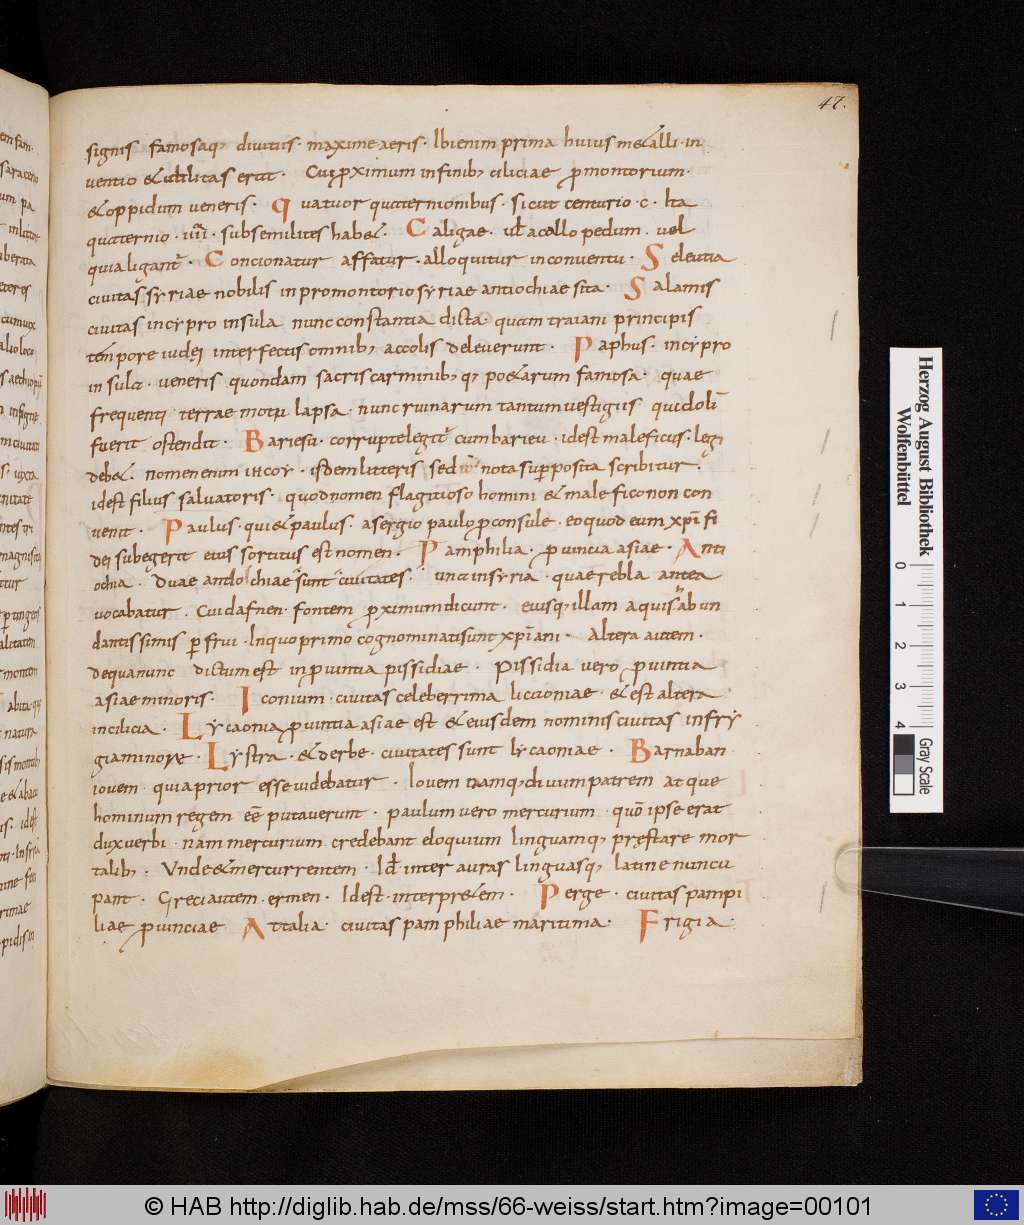 47.
signis famosaq; diuitiis. maxime aeris. Ibi enim prima huius m&alli. in
uentio & utilitas erat. Cui proximum in finib; ciliciae promontorium.
& oppidum ueneris. Quatuor quaternionibus. sicut centurio .c. Ita
quaternio . iiii. sub se milites hab&. Caligae. ul a callo pedum. uel
quia ligant. Concionatur affatur. alloquitur in conuentu. Seleutia
ciuitas syriae nobilis in promontorio syriae antiochiae sita. Salamis
ciuitas in cypro insula nunc constantia dicta. quam traiani principis
tempore iudei interfectis omnib; accolis deleuerunt. Paphus. in cypro
insula. ueneris quondam sacris carminib; q; po&arum famosa. quae
frequenti terrae motu lapsa. nunc ruinarum tantum uestigiis quid oli
fuerit ostendit. Bariesu. corrupte legit cum barieu. id est maleficus. legi
deb&. nomen enim ihcoy. isdem litteris sed nota superposita scribitur.
id est filius saluatoris. quod nomen flagitioso homini & malefico non con
uenit. Paulus. qui & paulus a sergio paulo proconsule. eo quod eum xpi fi
dei subegerit eius sortitus est nomen. Pamphilia. prouincia asiae. Anti
ochia. Duae antiochiae sunt ciuitates. una in syria. quae rebla antea
uocabatur. Cui dafnen. fontem proximum dicunt. eiusq; illam aquis abun
dantissimis perfrui. In quo primo cognominati sunt xpiani. Altera autem.
de qua nunc dictum est in prouintia pissidiae. Pissidia uero prouintia
asiae minoris. Iconium. ciuitas celeberrima liccioniae. & est altera
in cilicia. Lycaonia prouintia asiae est & eiusdem nominis ciuitas in fry
gia minore. Lystra. & derbe. ciuitates sunt lycaoniae. Barnaban
iouem. quia prior esse uidebatur. Iouem namq; diuum patrem atque
hominum regem eē putauerunt. paulum uero mercurium. quō ipse erat
dux uerbi. nam mercurium credebant eloquium linguamq; prestare mor
talib;. Vnde & mercurrentem. Id inter auras linguasq; latine nuncu
pant. Greci autem. ermen. Id est. interpr&em. Perge. ciuitas pampi
liae prouinciae Attalia. ciuitas pamphiliae maritima. Frigia.
Herzog August Bibliothek
Wolfenbüttel
0 1 2 3 4
Gray Scale
© HAB http://diglib.hab.de/mss/66-weiss/start.htm?image=00101